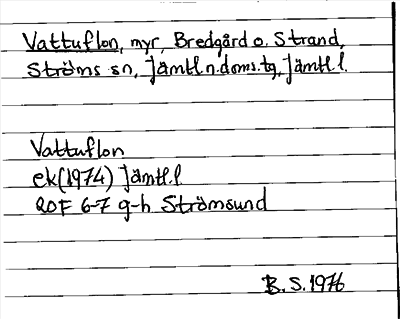 Vattuflon, myr, Bredgård o. Strand,
Ströms sn, Jämtl.n.doms.tg, Jämtl l.
Vattuflon
ek(1974) Jämtl.l
20F 6-7 g-h Strömsund
B.S. 1976